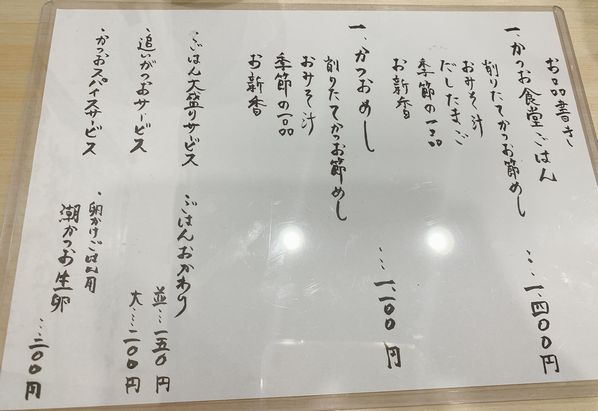 お品書き
一、かつお食堂ごはん …一、四〇〇円
削りたてかつお節めし
おみそ汁
だしたまご
季節の一品
お新香
一、かつおめし …一、一〇〇円
削りたてかつお節めし
おみそ汁
季節の一品
お新香
・ごはん大盛りサービス
・追いがつおサービス
・かつおスパイスサービス
・ごはんおかわり
並…一五〇円
大…二〇〇円
・卵かけごはん用
潮かつお生卵 …二〇〇円